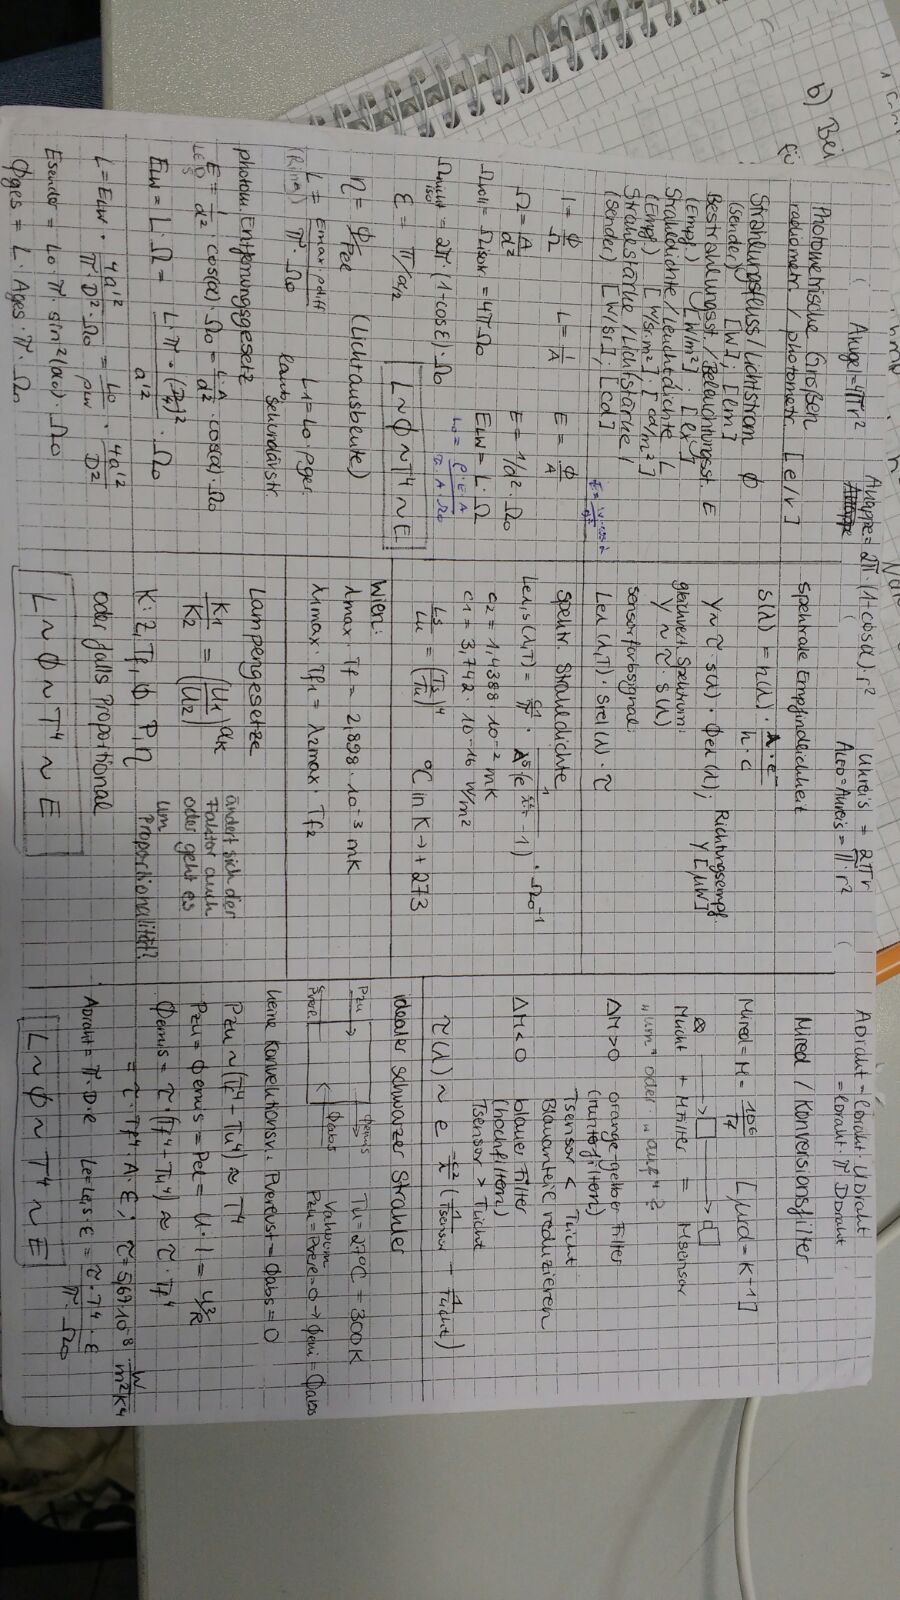 b) Bei
Akugel = 4πr²
AKappe = 2π·(1+cosα)·r²
Ukreis = 2πr
ALED = Akreis = π·r²
ADraht = lDraht · UDraht
= lDraht · π DDraht
Photometrische Größen
radiometr. / photometr. [e/v]
Strahlungsfluss / Lichtstrom Φ
(sender) [W] ; [lm]
Bestrahlungsst. / Beleuchtungsst. E
(Empf.) [W/m²] ; [lx]
Strahldichte / Leuchtdichte L
(Empf.) [W/sr m²] ; [cd/m²]
Strahlstärke / Lichtstärke I
(sender) : [W/sr] ; [cd]
I = Φ/Ω L = I/A E = Φ/A
Ω = A/d² E = I/d² · Ω₀
Ωvoll = Ωisotr = 4π Ω₀ ELW = L · Ω
Ω = 2π · (1-cosε) · Ω₀
L₀ = ρ·E·A / π·A·Ω₀
ε = π/α/2
L ~ Φ ~ T⁴ ~ E
η = Φ/Pel (Lichtausbeute)
L = Emax · ρdiff / π · Ω₀ L₁ = L₀ · ρges
Sekundärstr.
photom. Entfernungsgesetz
E = I/d² · cos(α) · Ω₀ = L·A/d² · cos(α) · Ω₀
LED
ELW = L · Ω = L · π · (D/4)² / a'² · Ω₀
L = ELW · 4a'² / π·D²·Ω₀ = L₀/ρLW · 4a'²/D²
Esender = L₀ · π · sin²(α₀) · Ω₀
Φges = L · Ages · π · Ω₀
Spektrale Empfindlichkeit
s(λ) = η(λ) · λ·e⁻ / h·c
Y ~ τ · s(λ) · Φeλ(λ) ; Richtungsempf.
Y [μW]
gleichwert. Spektrum:
Y ~ τ · s(λ)
Sensorfarbsignal:
Leλ(λ,T) · srel(λ) · τ
Spektr. Strahldichte
Leλ,s(λ,T) = c1/π · 1 / λ⁵(e^(c2/λT) - 1) · Ω₀⁻¹
c2 = 1,4388 · 10⁻² mK
c1 = 3,742 · 10⁻¹⁶ W/m²
Ls/Lu = (Ts/Tu)⁴ °C in K → + 273
Wien:
λmax · Tf = 2,898 · 10⁻³ mK
λ1max · Tf1 = λ2max · Tf2
Lampengesetze
K1/K2 = (U1/U2)^ak
ändert sich der
Faktor auch
oder geht es
um
Proportionalität?
K: Z, Tf, Φ, P, η
oder falls Proportional
L ~ Φ ~ T⁴ ~ E
Mired / Konversionsfilter
Mired = M = 10⁶/Tf [μrd = K⁻¹]
MLicht + MFilter = MSensor
„um" oder „auf"?
ΔM > 0 orange-gelber Filter
Tsensor < TLicht
Blauanteile reduzieren
ΔM < 0 blauer Filter
(hochfiltern)
Tsensor > TLicht
τ(λ) ~ e^(c2/λ (1/Tsensor - 1/TLicht))
idealer schwarzer Strahler
Pzu Φemis Tu = 27°C = 300K
Vakuum
Φabs Pzu = 0 → Φemi = Φabs
keine Konvektionsv.: Pverlust = Φabs = 0
Pzu ~ (Tf⁴ - Tu⁴) ≈ T⁴
Pzu = Φemis = Pel = U · I = U²/R
Φemis = τ · (Tf⁴ - Tu⁴) ≈ τ · Tf⁴
= τ · Tf⁴ · A · ε ; τ = 5,67·10⁻⁸ W/m²K⁴
ADraht = π · D · l Le = Le,s · ε = τ · T⁴ · ε / π · Ω₀
L ~ Φ ~ T⁴ ~ E